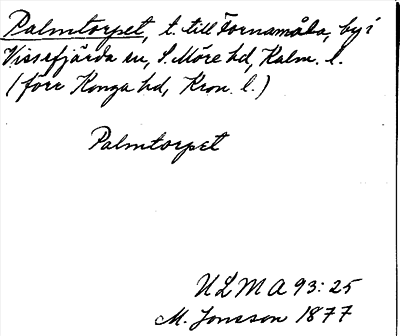 Palmtorpet, t. till Fornamåla, by i
Vissefjärda sn, S. Möre hd, Kalm. l.
(förr Konga hd, Kron. l.)
Palmtorpet
ULMA 93:25
M. Jonsson 1877